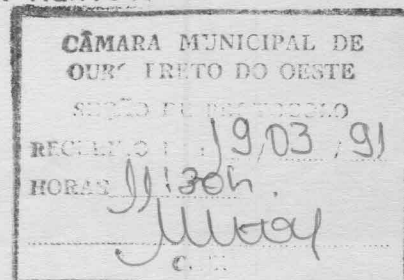 CÂMARA MUNICIPAL DE
OURO PRETO DO OESTE
SEÇÃO DE PROTOCOLO
RECEBIDO 19/03/91
HORAS 11:30h.